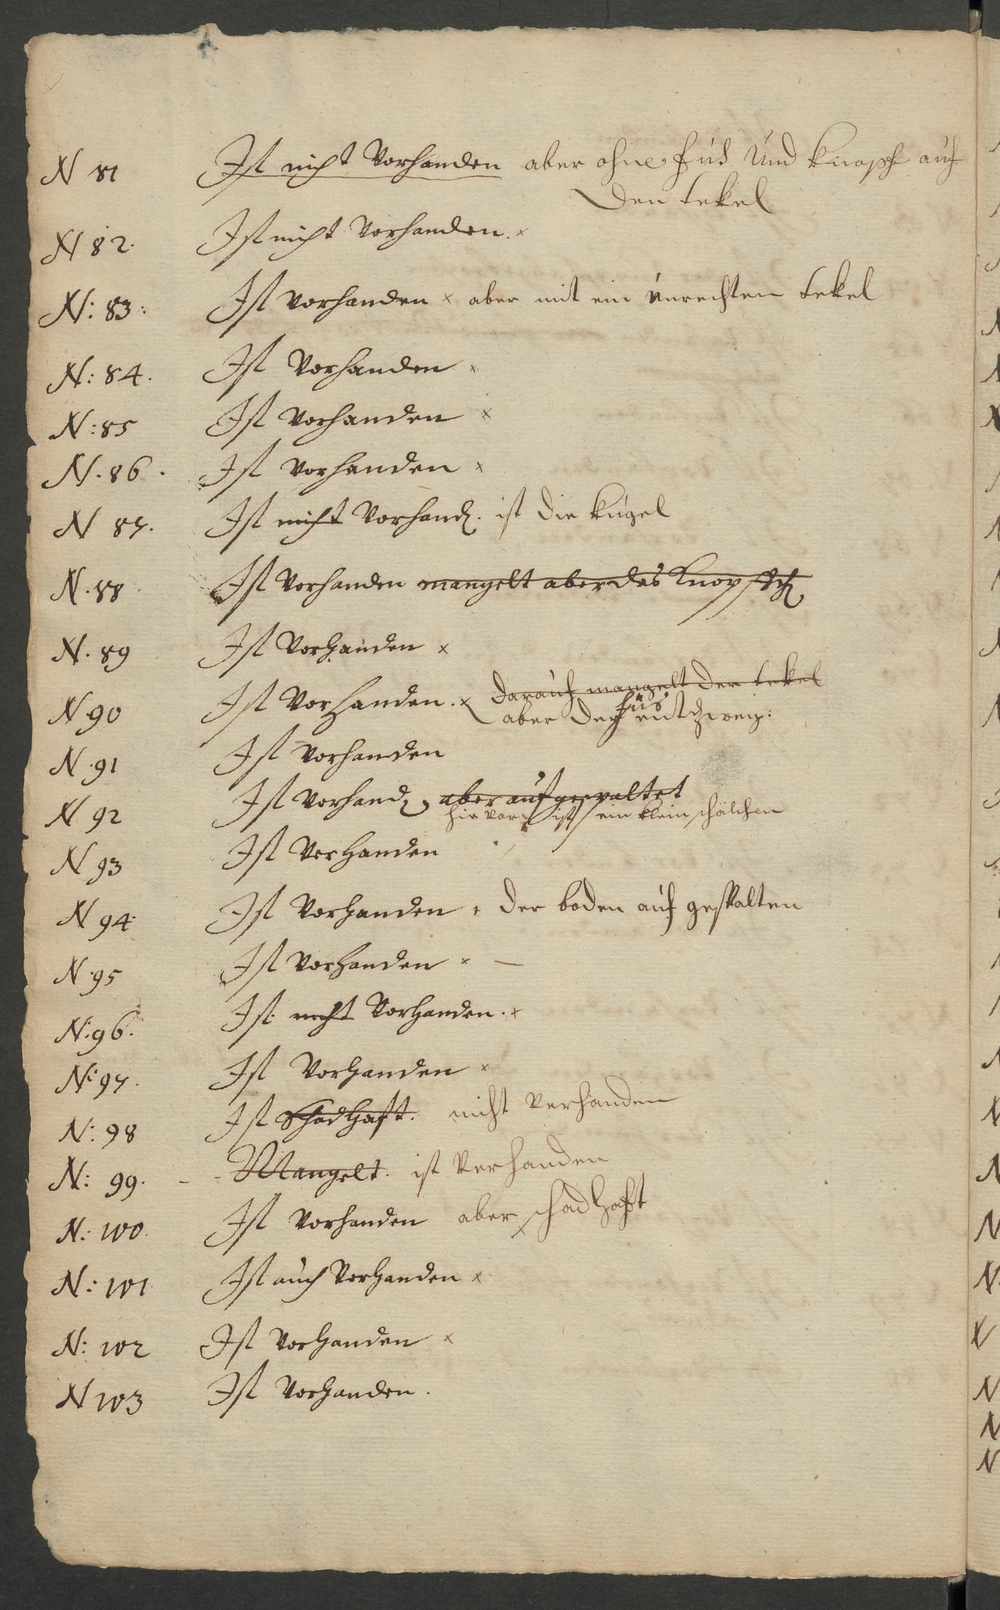 N 81 Ist nicht Vorhanden aber ohne fus Und knopf auf
Den tekel
N 82. Ist nicht Vorhanden. x
N: 83: Ist vorhanden x aber mit ein unrechten tekel
N: 84. Ist Vorhanden x
N: 85 Ist vorhanden x
N. 86. Ist vorhanden x
N 87. Ist nicht Vorhand. ist die kugel
N. 88 Ist Vorhanden mangelt aber das Knopf
N. 89 Ist Vorhanden x
N 90 Ist Vorhanden. x darauf mangelt der tekel
fus
aber der entzwey:
N. 91 Ist vorhanden
N 92 Ist vorhand, aber aufgespaltet
hie von ist ein klein schälchen
N 93 Ist Vorhanden
N 94. Ist Vorhanden, der boden auf gespalten
N. 95 Ist Vorhanden x –
N: 96. Ist nicht Vorhanden. x
N: 97. Ist Vorhanden x
N: 98 Ist Schadhaft. nicht Verhanden
N: 99. - - Mangelt. ist Verhanden
N: 100. Ist vorhanden aber schadhaft
x
N: 101 Ist auch Vorhanden x
N: 102 Ist Vorhanden x
N 103 Ist Vorhanden.